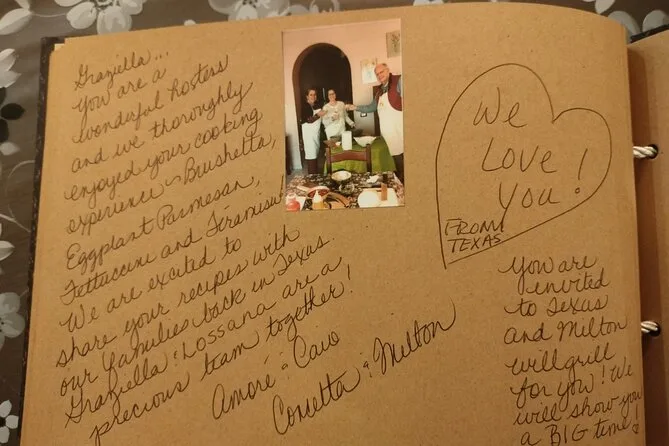 Graziella...
You are a
wonderful hostess
and we thoroughly
enjoyed your cooking
experience - Brushetta,
Eggplant Parmesan,
Fettuccini and Tiramisu!
We are excited to
share your recipes with
our families back in Texas.
Graziella & Lossana are a
precious team together!
Amoré & Cavo
Consetta & Milton
We
Love
You!
FROM
TEXAS
You are
invited
to Texas
and Milton
will grill
for you! We
will show you
a BIG time!